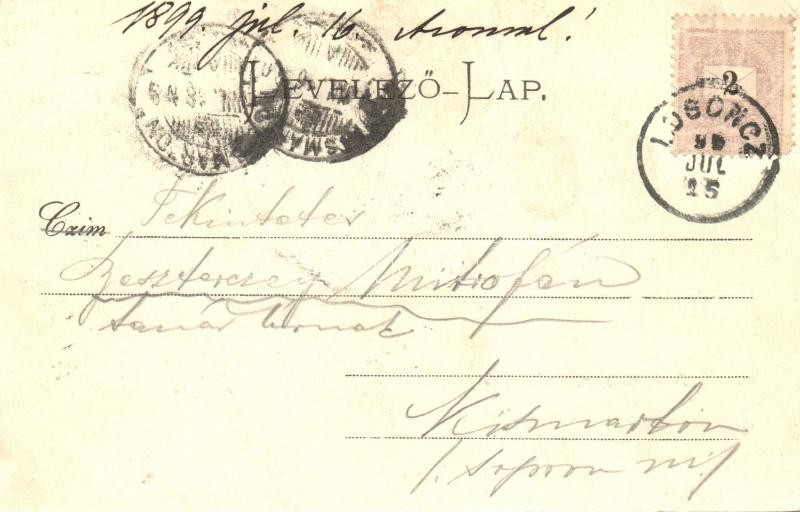 1899. júl. 16. Azonnal!
LEVELEZŐ-LAP.
2
LOSONCZ
99
JUL
15
KISMARTON
KISMARTON
Czim
Tekintetes
Beszterczey Mitrofán
tanár Urnak
Kismarton
Sopron m/